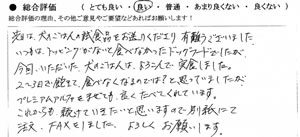 ● 総合評価 （ とても良い ・ 良い ・ 普通 ・ あまり良くない ・ 良くない ）
総合評価の理由、その他ご意見やご要望などあればお願いします！
先日は、犬のごはんの試食品をお送りくださり 有難うございました
いつもは、トッピングがないと食べなかったドッグフードでしたが、
今回、いただいた、犬のごはんは、よろこんで、完食しました。
2〜3日で飽きて、食べなくなるのでは？と思っていましたが
プレミアムアルファをまぜても、良くたべてくれています。
これからも続けていきたいと思いますので別紙にて
注文、FAXをしました。よろしくお願いします。